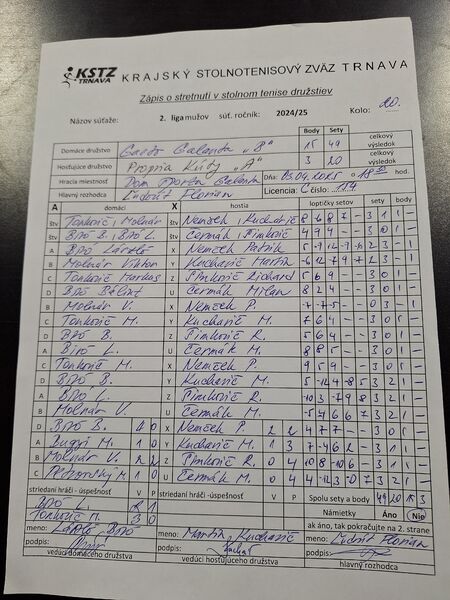 KSTZ TRNAVA KRAJSKÝ STOLNOTENISOVÝ ZVÄZ TRNAVA
Zápis o stretnutí v stolnom tenise družstiev
Názov súťaže: 2. liga mužov súť. ročník: 2024/25 Kolo: 20.
Body Sety celkový výsledok
Domáce družstvo Galanta "B" 15 49
Hosťujúce družstvo Propria Kúty "A" 3 20 celkový výsledok
Hracia miestnosť Dom športu Galanta Dňa: 03.04.2025 o 18:30 hod.
Hlavný rozhodca Ľudovít Florian Licencia: Číslo:
A domáci X hostia loptičky setov sety body
štv Tonkovič, Molnár štv Nemček, Kucharič 8 6 -8 7 - 3 1 1 -
štv Biró B., Biró L. štv Čermák, Šimkovič 4 9 4 - - 3 0 1 -
A Biró László X Nemček Patrik
B Molnár Viktor Y Kucharič Martin -6 12 -7 9 7 2 3 - 1
C Tonkovič Markus Z Šimkovič Richard 5 6 9 - - 3 0 1 -
D Biró Bálint U Čermák Milan 8 2 4 - - 3 0 1 -
B Molnár V. X Nemček P. -7 -7 -5 - - 0 3 - 1
C Tonkovič M. Y Kucharič M. 7 6 4 - - 3 0 1 -
D Biró B. Z Šimkovič R. 5 6 4 - - 3 0 1 -
A Biró L. U Čermák M. 8 8 5 - - 3 0 1 -
C Tonkovič M. X Nemček P. 9 5 9 - - 3 0 1 -
D Biró B. Y Kucharič M. 3 2 1 -
A Biró L. Z Šimkovič R. 3 2 1 -
B Molnár V. U Čermák M. 3 2 1 -
D Biró B. 4 0 X Nemček P. 2 2 4 7 7 - - 3 0 1 -
A Bugyi M. 1 0 Y Kucharič M. 1 3 7 -4 6 2 - 3 1 1 -
B Molnár V. 2 2 Z Šimkovič R. 0 4 3 1 1 -
C M. 1 0 U Čermák M. 0 4 3 2 1 -
striedaní hráči - úspešnosť V P striedaní hráči - úspešnosť V P Spolu sety a body 49 20 15 3
Biró L. 2 1 Námietky Áno Nie
Tonkovič M. 3 0 ak áno, tak pokračujte na 2. strane
meno: László Biró meno: Martin Kucharič meno: Ľudovít Florian
podpis: podpis: podpis:
vedúci domáceho družstva vedúci hosťujúceho družstva hlavný rozhodca